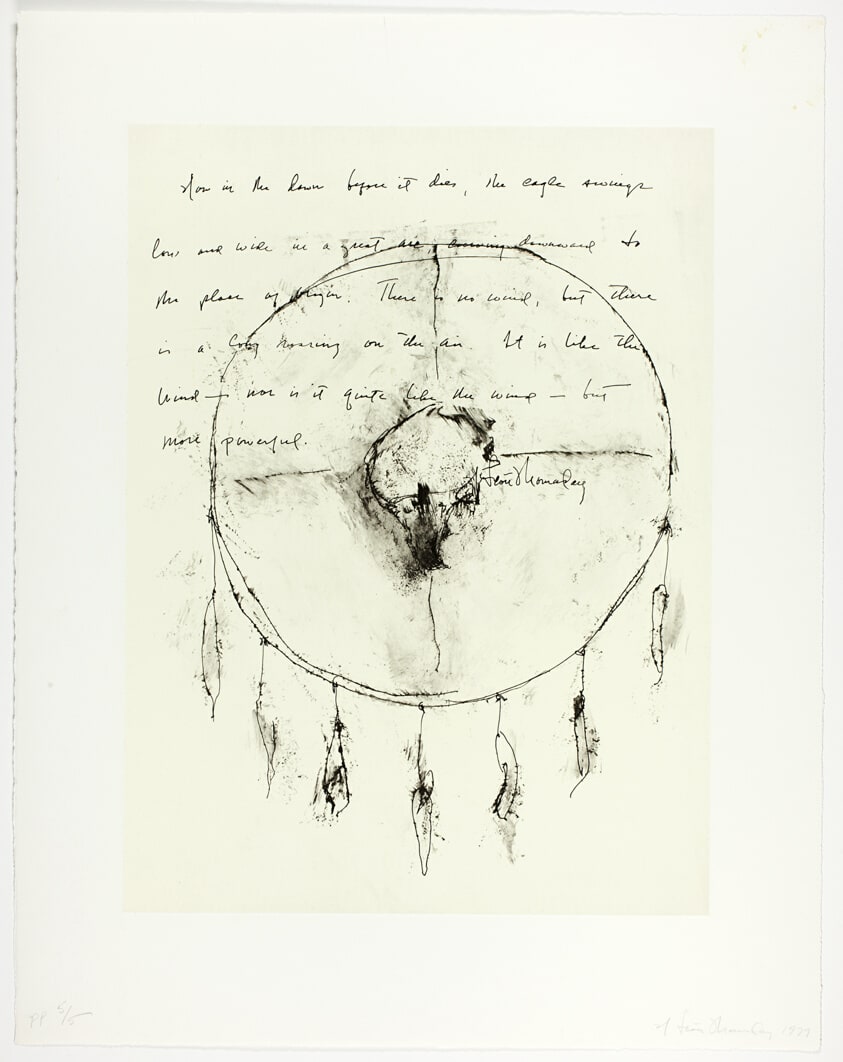 Now in the dawn before it dies, the eagle swings
low and wide in a great arc, curving downward to
the place of origin. There is no wind, but there
is a long roaring on the air. It is like the
wind — nor is it quite like the wind — but
more powerful.
N. Scott Momaday
PP 5/5
N. Scott Momaday